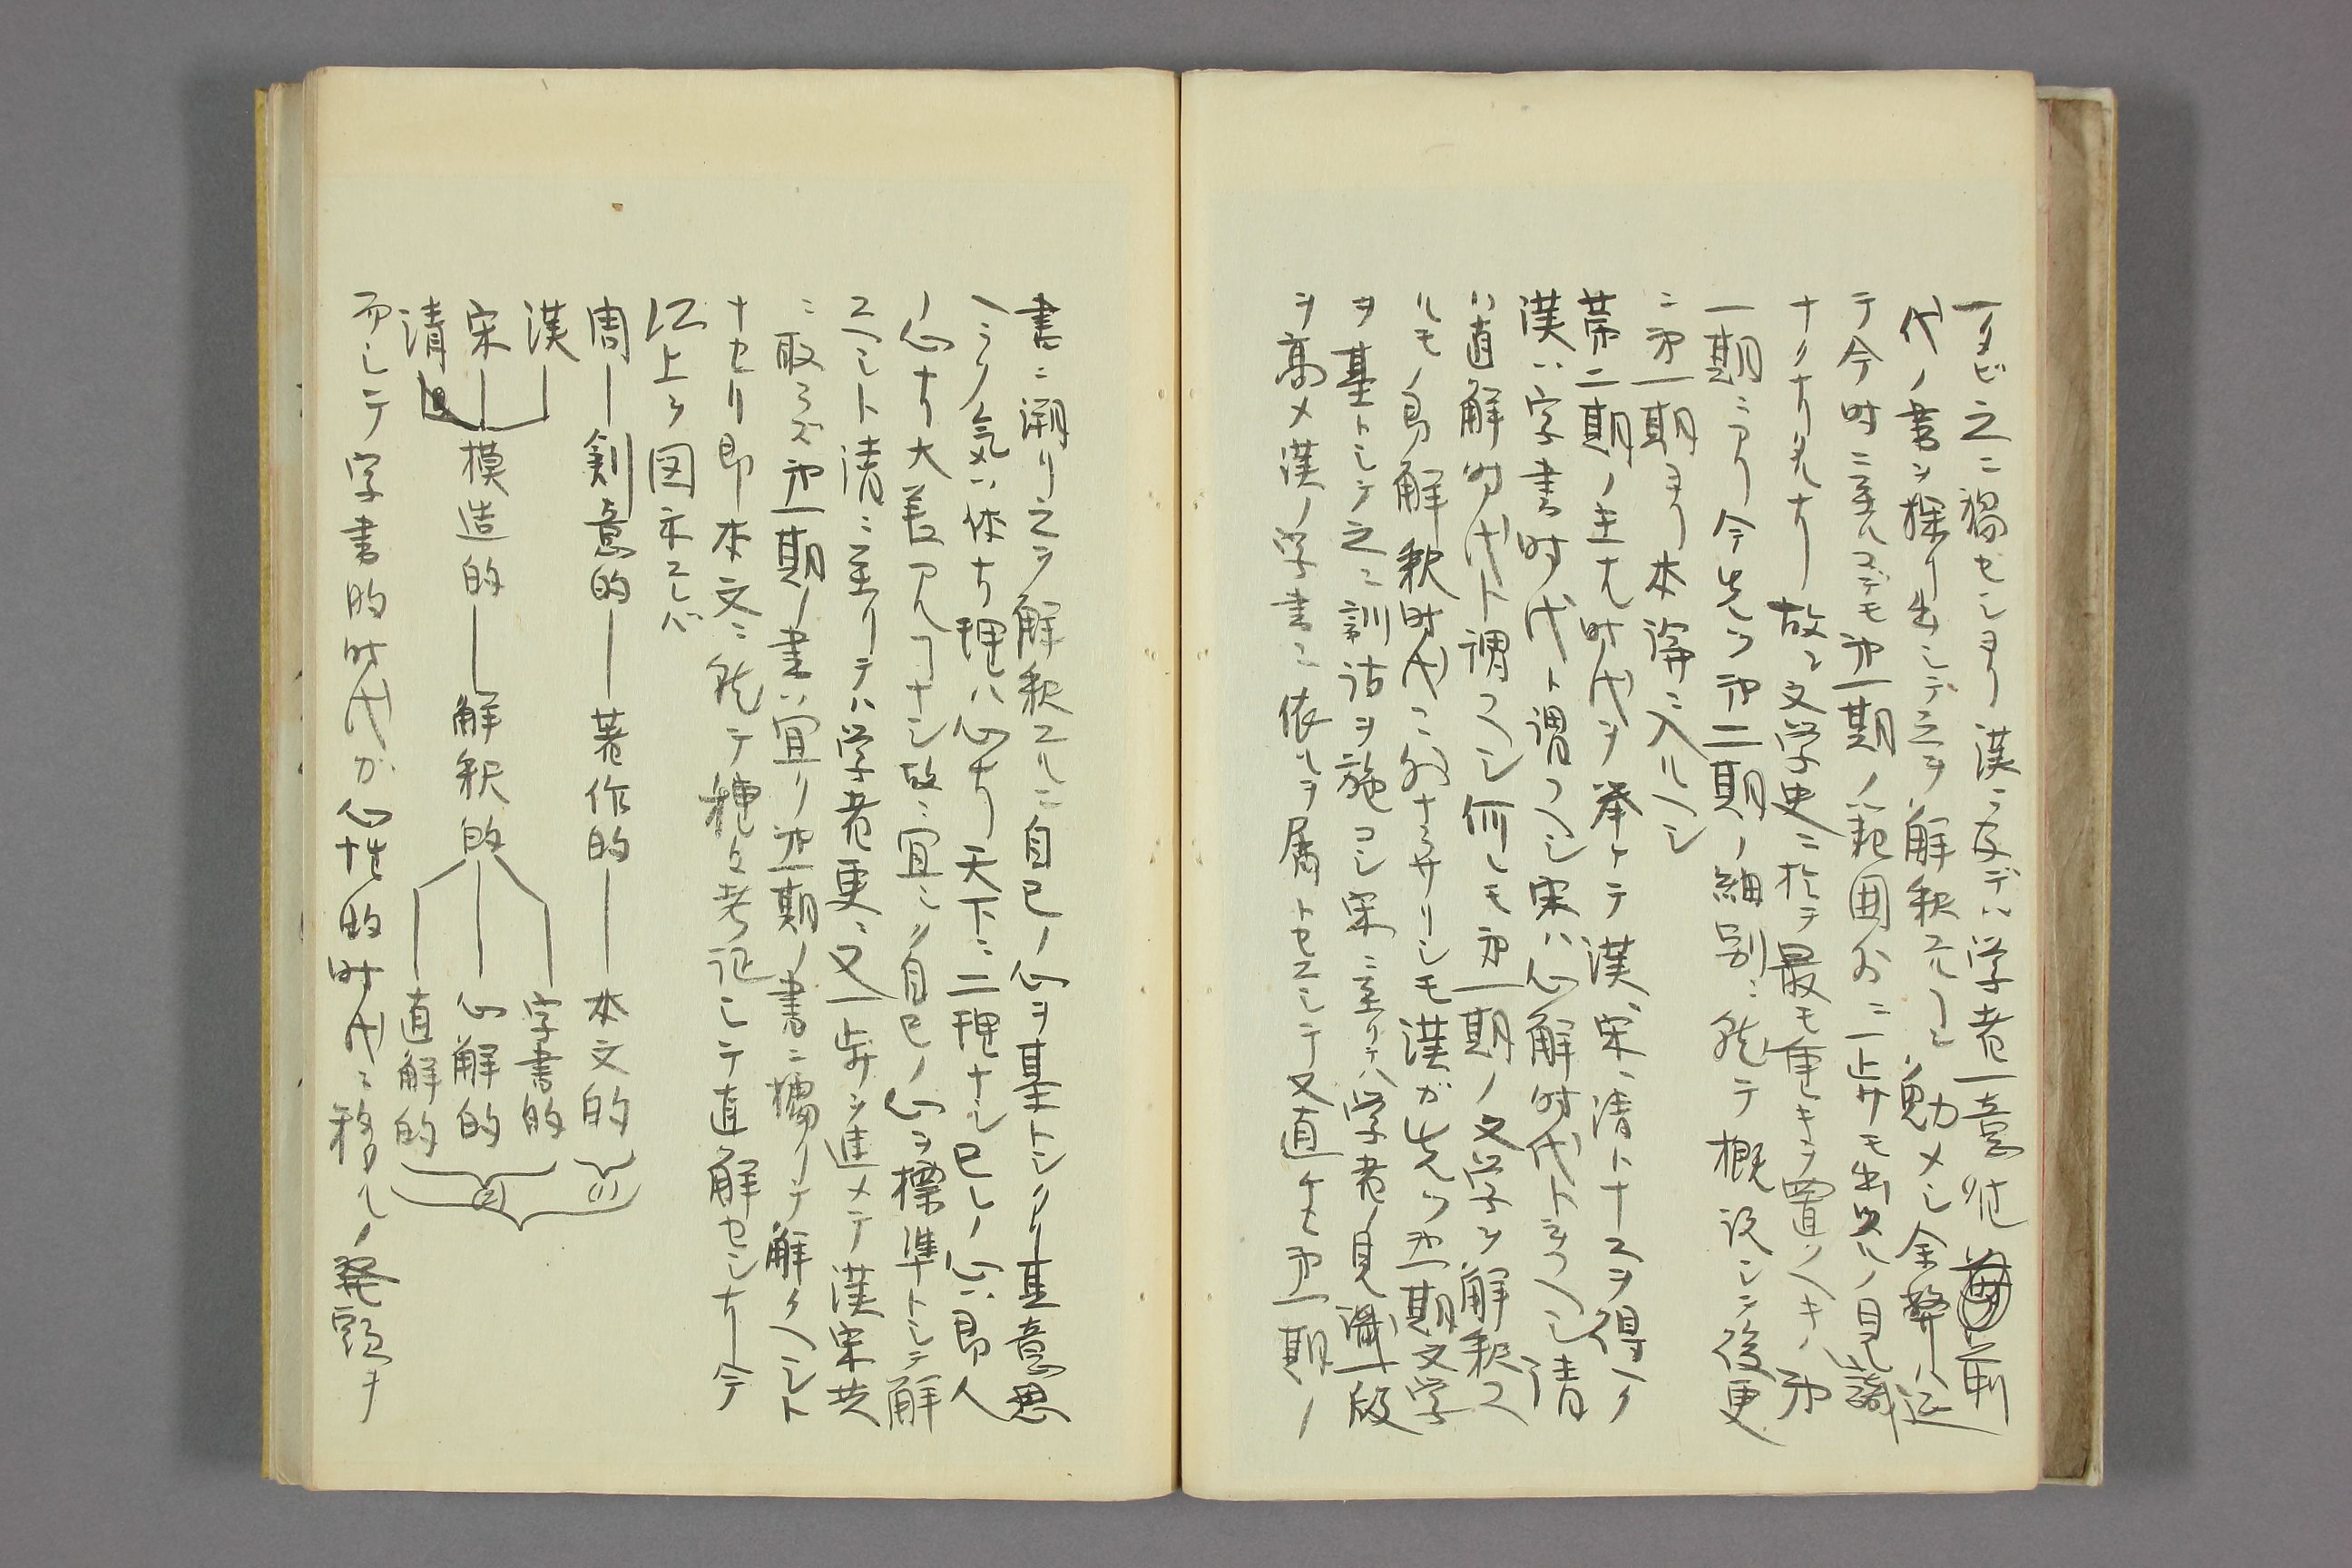 一タビ之ニ禍セシヨリ漢ニ及デハ学者一意唯前
代ノ書ヲ探リ出シテ之ヲ解釈スルヿヲ勉メシ余弊ハ延
テ今時ニ至ルマデモ㐧一期ノ範囲外ニ一歩モ出ツルノ見識
ナクナリ凡ナリ故ニ文学史ニ於テ最モ重キヲ置クヘキハ㐧
一期ニアリ今先ツ㐧二期ノ細別ニ就テ概説シテ後更
ニ㐧一期ヨリ本論ニ入ルヘシ
第二期ノ主ナル時代ヲ挙ケテ漢、宋、清トナスヲ得ヘク
漢ハ字書時代ト謂フヘシ宋ハ心解時代ト云フヘシ清
ハ直解時代ト謂フヘシ何レモ㐧一期ノ文学ヲ解釈ス
ルモノ即解釈時代ニ外ナラザリシモ漢ガ先ツ㐧一期文学
ヲ基トシテ之ニ訓詁ヲ施コシ宋ニ至リテハ学者ノ見識一段
ヲ高メ漢ノ字書ニ依ルヲ屑トセスシテ又直チニ㐧一期ノ
書ニ溯リ之ヲ解釈スルニ自己ノ心ヲ基トシタリ其意思
ヘラク気ハ体ナリ理ハ心ナリ天下ニ二理ナシ己レノ心ハ即人
ノ心ナリ大差アルヿナシ故ニ宜シク自己ノ心ヲ標準トシテ解
スヘシト清ニ至リテハ学者更ニ又一歩ヲ進メテ漢宋共
ニ取ラズ㐧一期ノ書ハ宜ク㐧一期ノ書ニ拠リテ解クヘシト
ナセリ即本文ニ就テ種々考証シテ直解セシナリ今
以上ヲ図示スレバ
周―創意的―著作的―本文的(1)
漢
宋―模造的―解釈的
清
字書的
心解的
直解的
(2)
而シテ字書的時代が心性的時代ニ移ルノ発頭ヲ